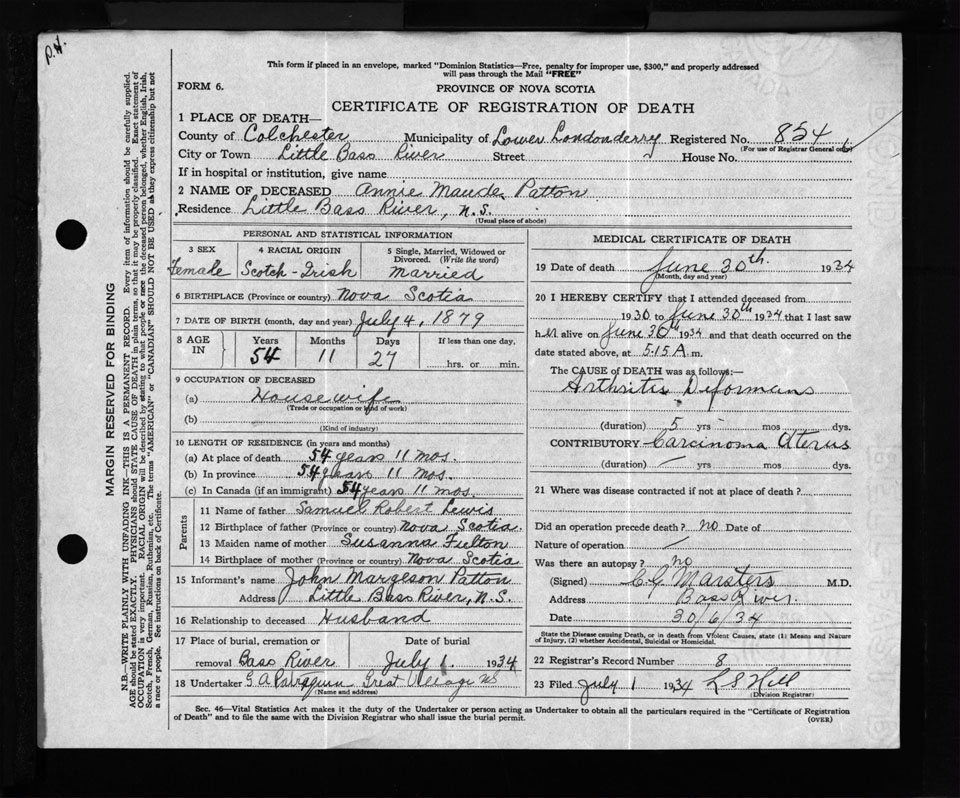 P.H.
This form if placed in an envelope, marked "Dominion Statistics—Free, penalty for improper use, $300," and properly addressed
will pass through the Mail "FREE"
FORM 6.
PROVINCE OF NOVA SCOTIA
CERTIFICATE OF REGISTRATION OF DEATH
1 PLACE OF DEATH—
County of Colchester Municipality of Lower Londonderry Registered No. 854
(For use of Registrar General only)
City or Town Little Bass River Street House No.
If in hospital or institution, give name
2 NAME OF DECEASED Annie Maude Patton
Residence Little Bass River, N.S.
(Usual place of abode)
PERSONAL AND STATISTICAL INFORMATION
3 SEX 4 RACIAL ORIGIN 5 Single, Married, Widowed or
Divorced. (Write the word)
Female Scotch-Irish Married
6 BIRTHPLACE (Province or country) Nova Scotia
7 DATE OF BIRTH (month, day and year) July 4, 1879
8 AGE IN Years Months Days If less than one day,
54 11 27 hrs. or min.
9 OCCUPATION OF DECEASED
(a) Housewife
(Trade or occupation or kind of work)
(b)
(Kind of industry)
10 LENGTH OF RESIDENCE (in years and months)
(a) At place of death 54 years 11 mos.
(b) In province 54 years 11 mos.
(c) In Canada (if an immigrant) 54 years 11 mos.
Parents
11 Name of father Samuel Robert Lewis
12 Birthplace of father (Province or country) Nova Scotia.
13 Maiden name of mother Susanna Fulton
14 Birthplace of mother (Province or country) Nova Scotia
15 Informant's name John Margeson Patton
Address Little Bass River, N.S.
16 Relationship to deceased Husband
17 Place of burial, cremation or Date of burial
removal Bass River July 1 1934
18 Undertaker G A Great Village NS
(Name and address)
MEDICAL CERTIFICATE OF DEATH
19 Date of death June 30th 1934
(Month, day and year)
20 I HEREBY CERTIFY that I attended deceased from
1930 to June 30th 1934 that I last saw
her alive on June 30th 1934 and that death occurred on the
date stated above, at 5.15 A. m.
The CAUSE OF DEATH was as follows:—
Arthritis Deformans
(duration) 5 yrs mos dys.
CONTRIBUTORY Carcinoma Uterus
(duration) — yrs mos. dys.
21 Where was disease contracted if not at place of death?
Did an operation precede death? no Date of
Nature of operation
Was there an autopsy? no
(Signed) C G Marsters M.D.
Address Bass River.
Date 30/6/34
State the Disease causing Death, or in death from Violent Causes, state (1) Means and Nature
of Injury, (2) whether Accidental, Suicidal or Homicidal.
22 Registrar's Record Number 8
23 Filed July 1 1934 L S Hill
(Division Registrar)
Sec. 46—Vital Statistics Act makes it the duty of the Undertaker or person acting as Undertaker to obtain all the particulars required in the "Certificate of Registration
of Death" and to file the same with the Division Registrar who shall issue the burial permit.
(OVER)
MARGIN RESERVED FOR BINDING
N.B.—WRITE PLAINLY WITH UNFADING INK—THIS IS A PERMANENT RECORD. Every item of information should be carefully supplied.
AGE should be stated EXACTLY. PHYSICIANS should STATE CAUSE OF DEATH in plain terms, so that it may be properly classified. Exact statement of
OCCUPATION is very important. RACIAL ORIGIN will be described by stating to what people or race the deceased person belonged, whether English, Irish,
Scotch, French, German, Russian, Ruthenian, etc. The terms "AMERICAN" or "CANADIAN" SHOULD NOT BE USED as they express citizenship but not
a race or people. See instructions on back of Certificate.